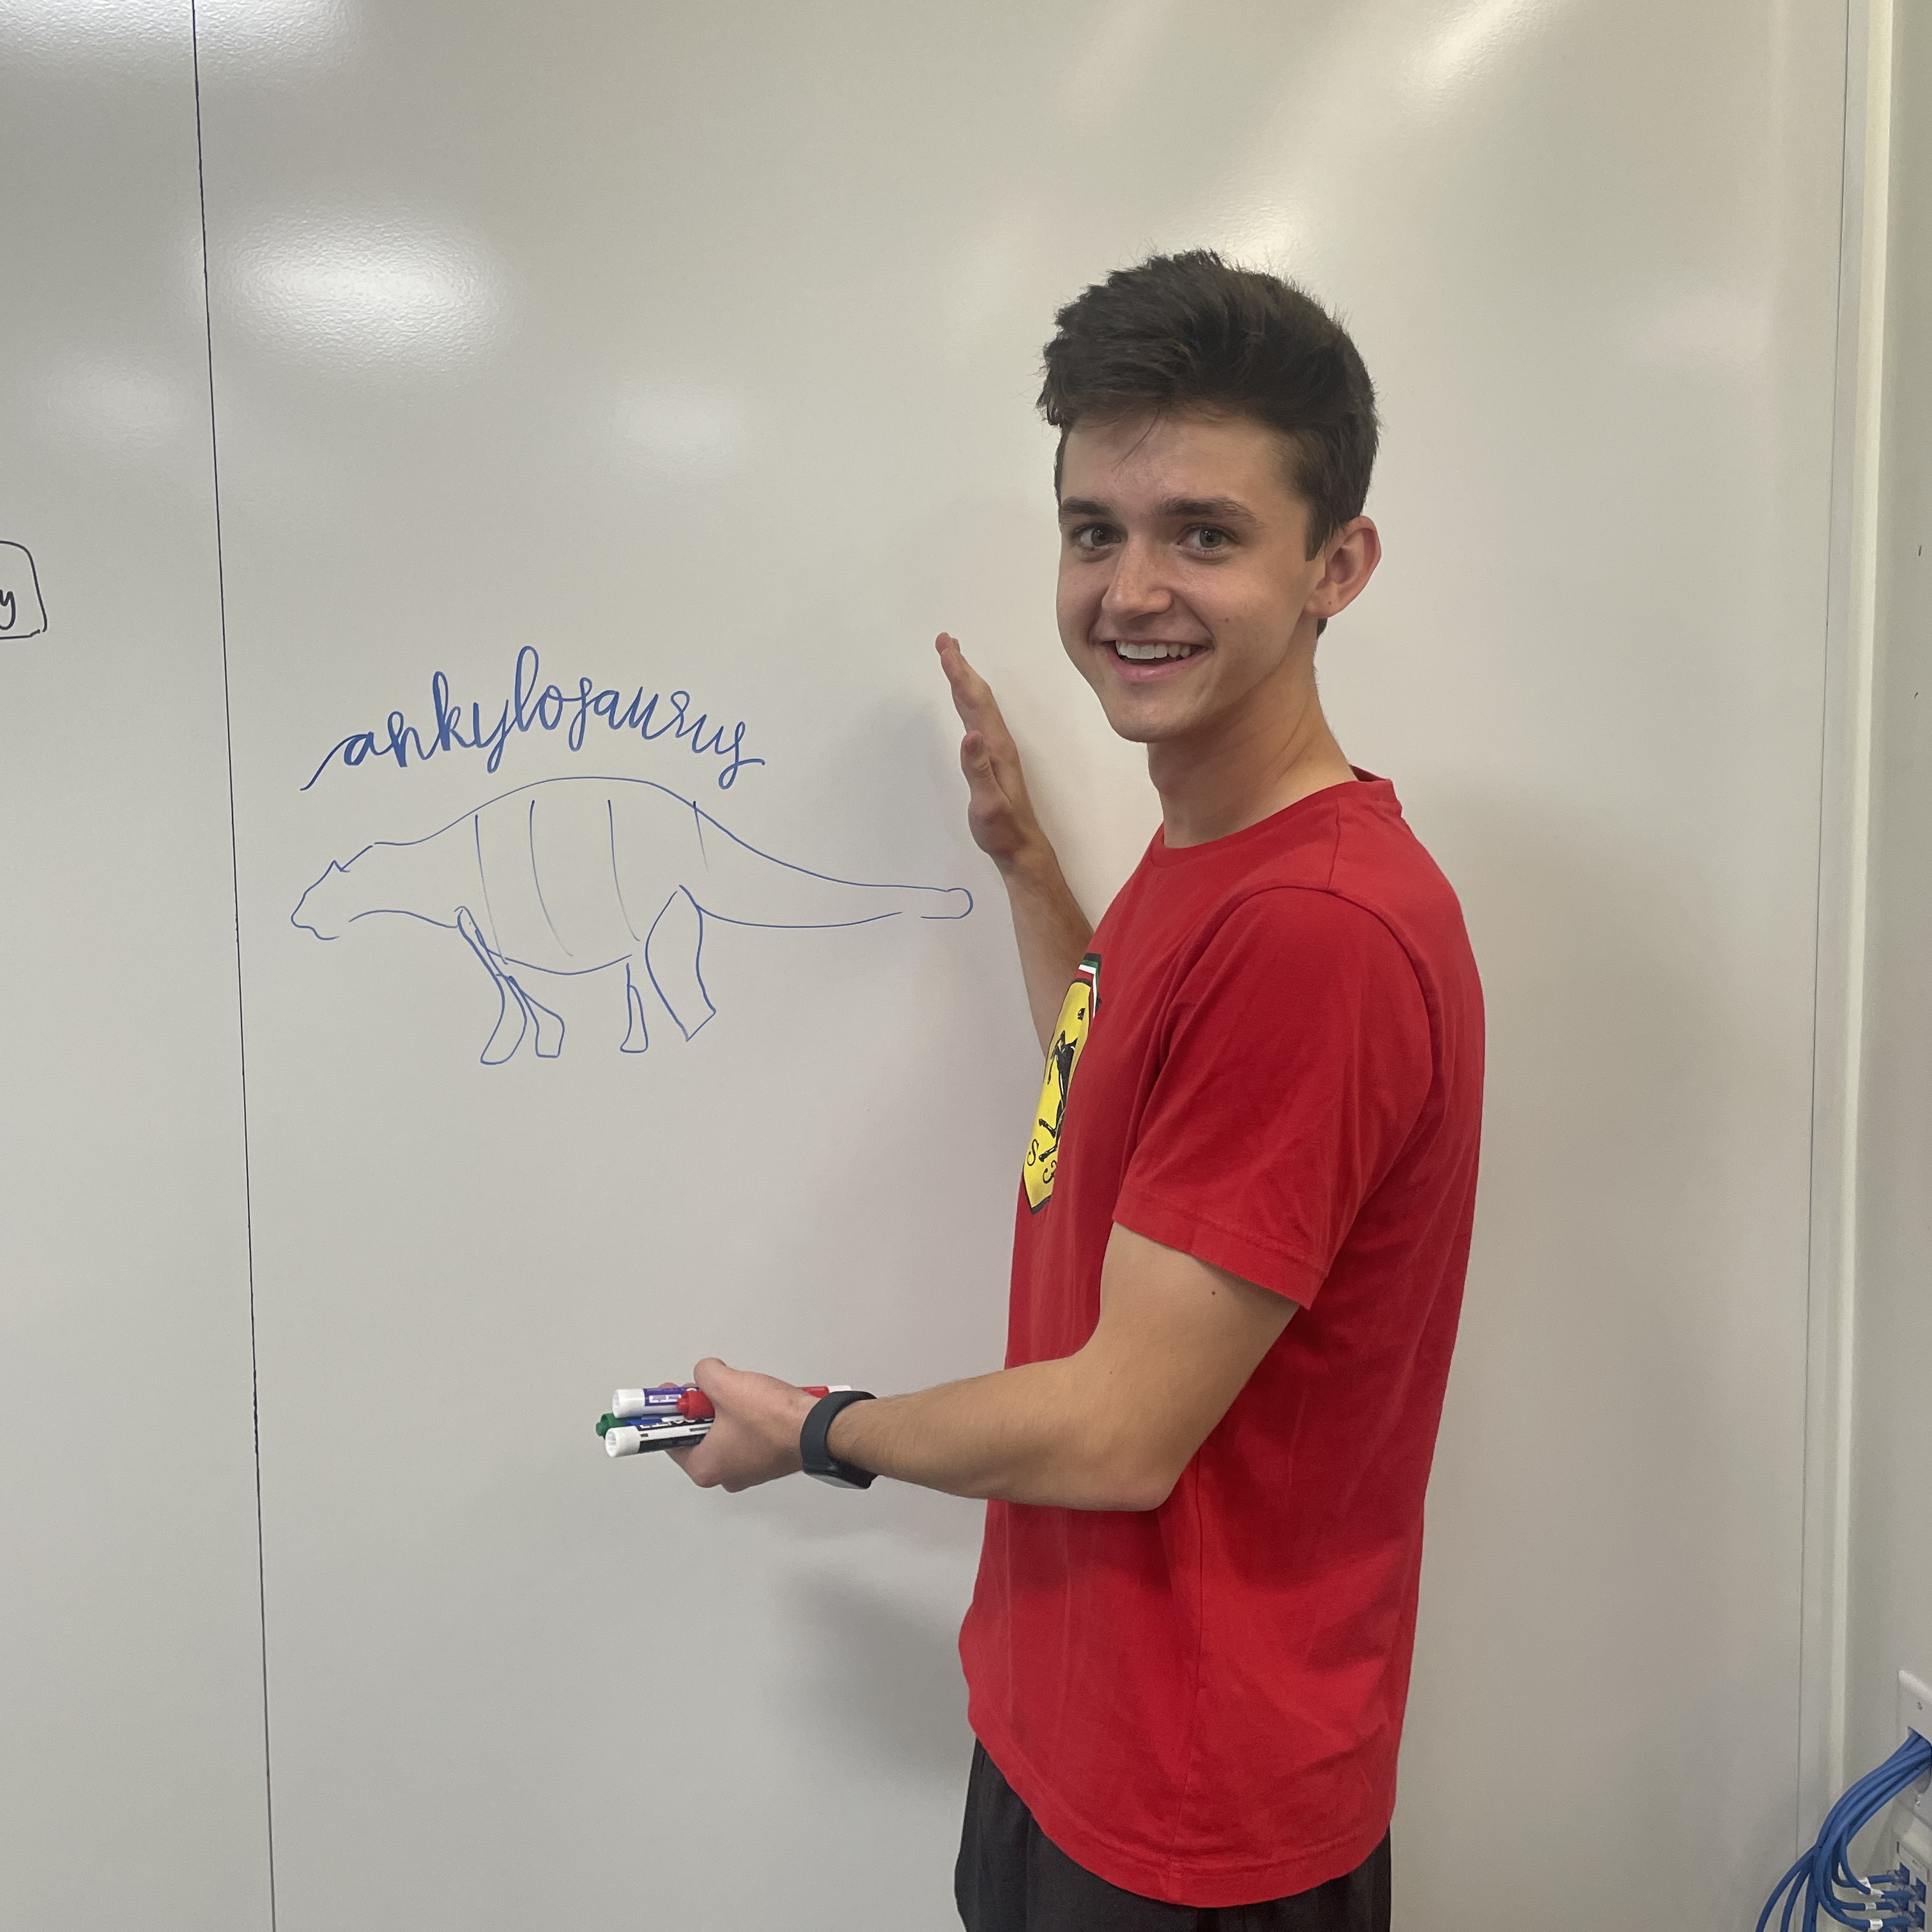 y
ankylosaurus
S